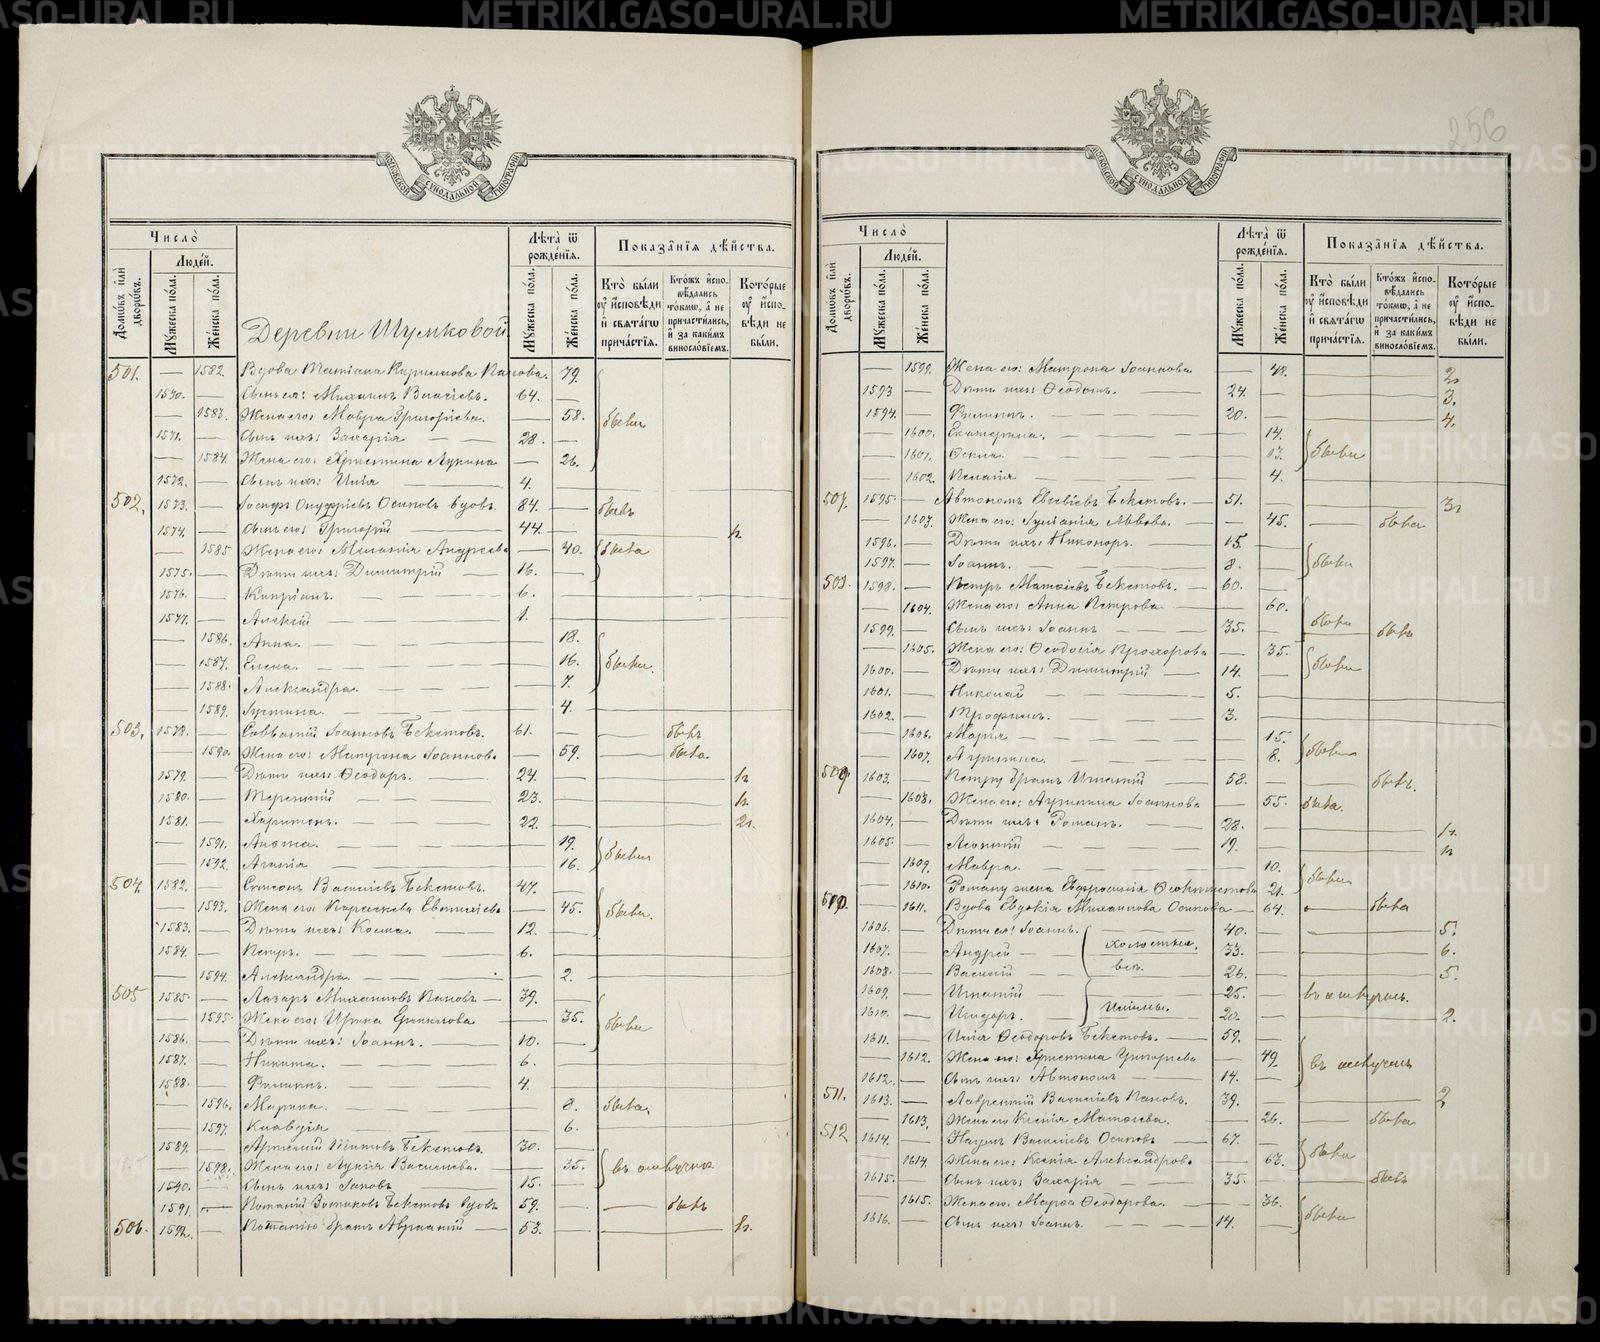 METRIKI.GASO-URAL.RU
256
МОСКОВСКОЙ СУНОДАЛЬНОЙ ТИПОГРАФІИ
Число̀
Людей.
Домѡвъ и҆лѝ дворѡвъ.
Мꙋжеска по́ла.
Же́нска по́ла.
Лѣ́та ѿ рожде́нїѧ.
Мꙋжеска по́ла.
Же́нска по́ла.
Показа̑нїѧ дѣ́йства.
Кто̀ бы́ли ᲂу҆ и҆сповѣди и҆ свѧта́гѡ прича́стїѧ.
Кто́жъ и҆спо-вѣдались то́кмѡ, а҆ не причасти́лись, и҆ за каки́мъ винослѡ́вїемъ.
Кото́рые ᲂу҆ и҆спо-вѣди не бы́ли.
Деревни Шумковой
501. — 1582. Вдова Татіана Кирилова Панова. 79.
1570. — Сынъ ея: Михаилъ Власіевъ. 64. —
— 1583. Жена его: Мавра Григоріева. — 58. были
1571. — Сынъ ихъ: Захарія — — 28. —
— 1584. Жена его: Христина Лукина — 26.
1572. — Сынъ ихъ: Илія — 4.
502. 1573. — Іосифъ Онуфріевъ Осиповъ вдовъ. 84. — былъ
1574. — Сынъ его: Григорій — 44. —
— 1585 Жена его: Меланія Андреева — 40. была
1575. — Дѣти ихъ: Димитрій — 16. —
1576. — Кипріанъ. — — 6. —
1577. — Алексій — — 1. —
— 1586. Анна. — — 18.
— 1587. Елена. — — 16. были.
— 1588. Александра. — — 7.
— 1589. Іустина. — — 4.
503. 1578. — Савватій Іоанновъ Бекетовъ. 61. — — былъ
— 1590. Жена его: Матрона Іоаннов. — 59. — была.
1579. — Дѣти ихъ: Ѳеодоръ. — 24. —
1580. — Терентій — — 23. —
1581. — Харитонъ. — — 22. — 2.
— 1591. 19. были
— 1592. Агапія — 16.
504. 1582. — Симеонъ Василіевъ Бекетовъ. 47. —
— 1593. Жена его: Параскева — 45. были.
1583. — Дѣти ихъ: Косма. — 12. —
1584. — Петръ. — — 6. —
— 1594. Александра. — — 2.
505 1585. — Лазарь Михаиловъ Пановъ — 39. —
— 1595. Жена его: Ирина — 35. были
1586. — Дѣти ихъ: Іоаннъ. — 10. —
1587. — Никита. — — 6. —
1588. — Филиппъ. — — 4. —
— 1596. Марина. — — 8. была.
— 1597. Клавдія — — 6.
1589. — Артемій Титовъ Бекетовъ. 30. —
— 1598. Жена его: Лукія Василіева. — — 35. въ отлучкѣ
1590. — Сынъ ихъ: Іаковъ — 15. —
1591. — Потапій Зотиковъ Бекетовъ вдовъ 59. — — былъ
506. 1592. — Потапію братъ Авраамій — 53. —
— 1599. Жена его: Матрона Іоаннова — 48. 2.
1593 — Дѣти ихъ: Ѳеодотъ. — 24. — 3.
1594. — Филиппъ. — — 20. — 4.
— 1600. Екатерина. — — 14.
— 1601. Ѳекла. — — 13. были
— 1602. Пелагія — — 4.
507. 1595 — Автономъ Евсевіевъ Бекетовъ. — 51. —
— 1603. Жена его: Іуліанія Львова. — — 45. — была
1596. — Дѣти ихъ: Никоноръ. — 15. —
1597. — Іоаннъ. — — 8. — были
508. 1598. — Петръ Матѳіевъ Бекетовъ. — 60. —
— 1604. Жена его: Анна Петрова — 60. были
1599. — Сынъ ихъ: Іоаннъ — — 35. — былъ
— 1605. Жена его: Ѳеодосія Прохорова — 35.
1600. — Дѣти ихъ: Димитрій — 14. — были
1601. — Николай — — 5. —
1602. — Трофимъ. — — 3. —
— 1606. Марія — — 15.
— 1607. Агрипина. — — 8. были
509 1603. — Петру братъ Игнатій — 58. — былъ.
— 1608. Жена его: Агрипина Іоаннова — 55. была.
1604. — Дѣти ихъ: Романъ. — 28. —
1605. — Леонтій — — 19. —
— 1609. Мавра. — — 10.
— 1610. Роману жена Евфросинія Ѳеоктистова 21. были.
510. — 1611. Вдова Евдокія Михаилова Осипова — 64. — была
1606. — Дѣти ея: Іоаннъ. 40. — 5.
1607. — Андрей — — холостые. 33. — 6.
1608. — Василій — все. 26. — 5.
1609. — Игнатій — 25. — въ отлучкѣ.
1610. — Исидоръ. — 20. — 2.
1611. — Илія Ѳеодоровъ Бекетовъ. — 59. —
— 1612. Жена его: Христина Григорьева — 49. въ отлучкѣ
1612. — Сынъ ихъ: Автономъ — 14. —
511. 1613. — Лаврентій Василіевъ Пановъ. 39. — 2
— 1613. Жена его Ксенія Матѳеева. — 26. — была
512 1614. — Наумъ Василіевъ Осиповъ — 67. —
— 1614. Жена его: Ксенія Александров. — 63. были
1615. — Сынъ ихъ: Захарія — — 35. — былъ
— 1615. Жена его: Марѳа Ѳеодорова. — — 36.
1616. — Сынъ ихъ: Іоаннъ. — — 14. — были